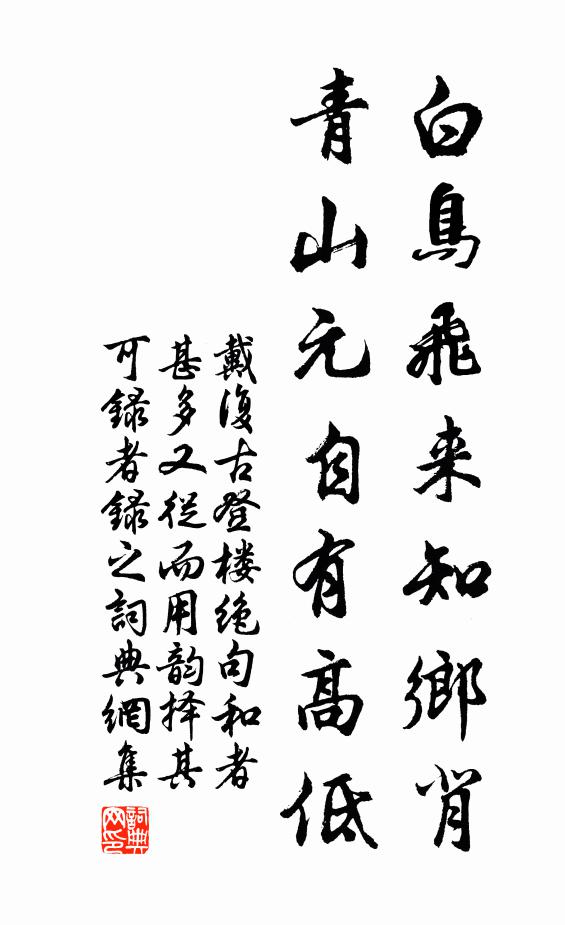 白鳥飛来知鄉背
青山元自有高低
戴復古登楼絶句和者
甚多又從而用韵择其
可録者録之詞典網集
詞典
网印